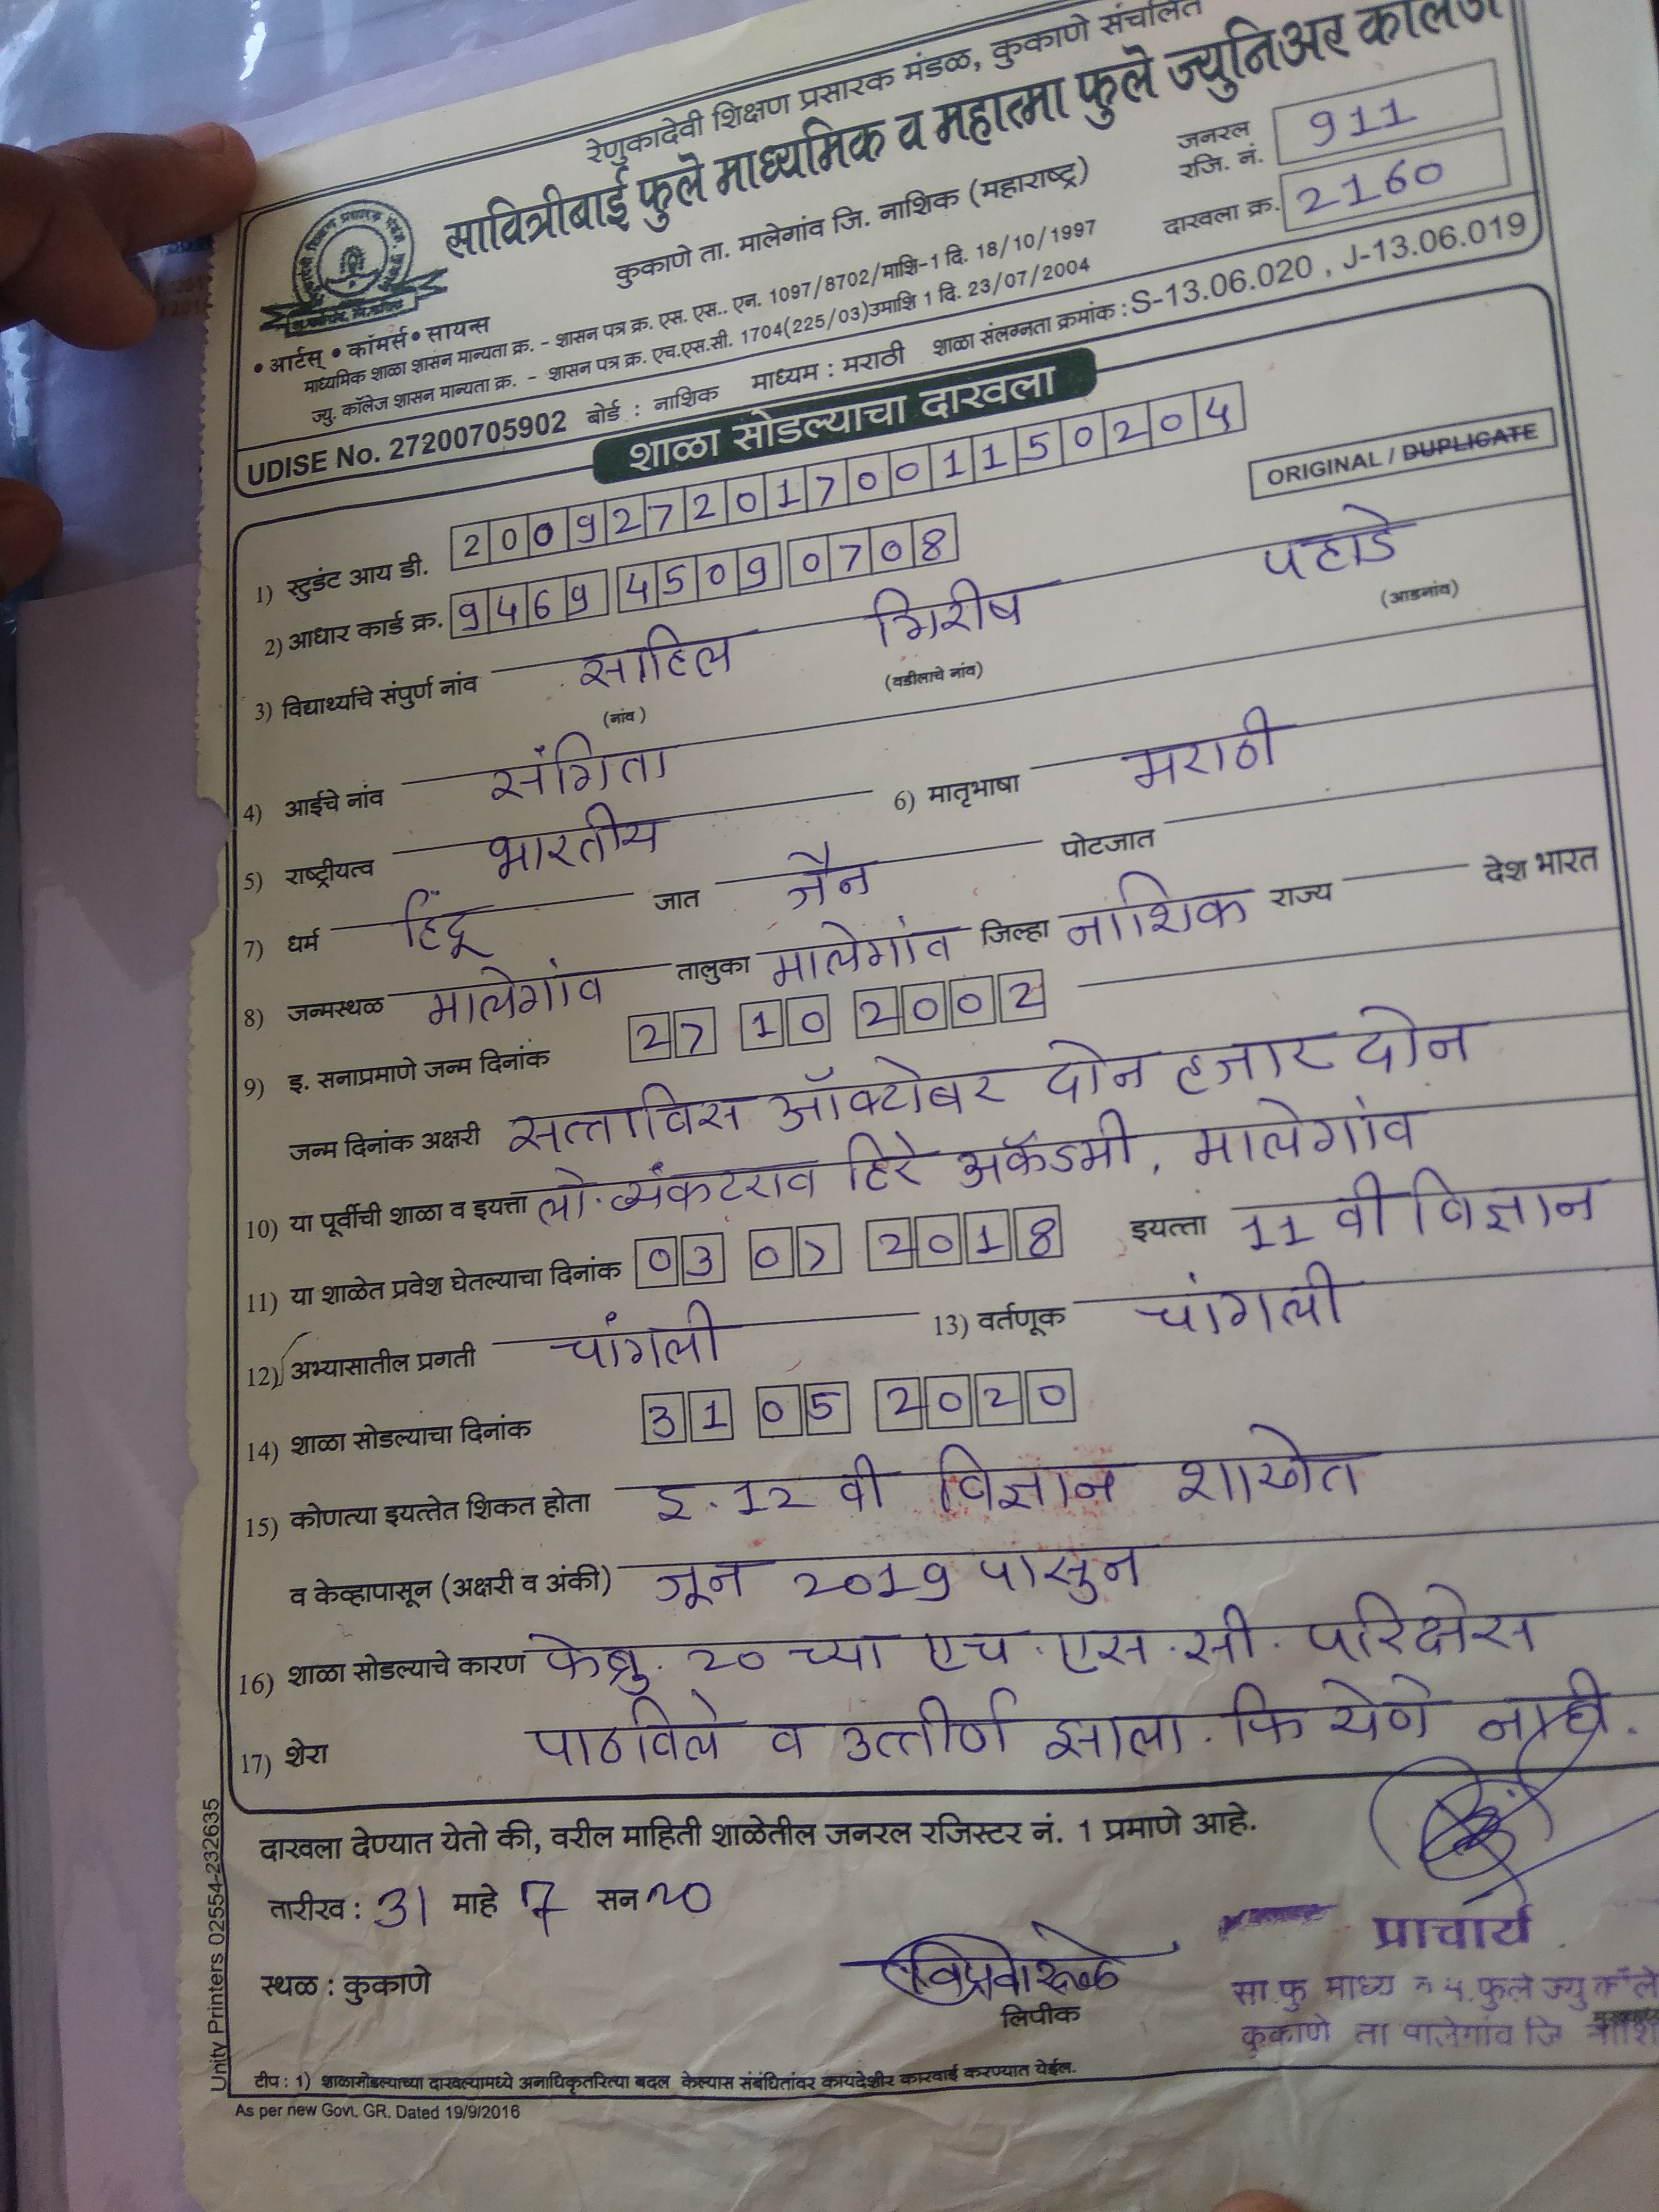 रेणुकादेवी शिक्षण प्रसारक मंडळ, कुकाणे संचलित
सावित्रीबाई फुले माध्यमिक व महात्मा फुले ज्युनिअर कॉलेज
कुकाणे ता. मालेगांव जि. नाशिक (महाराष्ट्र)
जनरल रजि. नं. 911
दाखला क्र. 2160
• आर्टस् • कॉमर्स • सायन्स
माध्यमिक शाळा शासन मान्यता क्र. - शासन पत्र क्र. एस. एस.. एन. 1097/8702/माशि-1 दि. 18/10/1997
ज्यु. कॉलेज शासन मान्यता क्र. - शासन पत्र क्र. एच.एस.सी. 1704(225/03)उमाशि 1 दि. 23/07/2004
UDISE No. 27200705902 बोर्ड : नाशिक माध्यम : मराठी शाळा संलग्नता क्रमांक : S-13.06.020 , J-13.06.019
शाळा सोडल्याचा दाखला
ORIGINAL / DUPLICATE
1) स्टुडंट आय डी. 2009272017001150204
2) आधार कार्ड क्र. 9469 4509 0708
3) विद्यार्थ्याचे संपुर्ण नांव साहिल गिरीष पहाडे
(नांव) (वडीलाचे नांव) (आडनांव)
4) आईचे नांव संगिता
5) राष्ट्रीयत्व भारतीय 6) मातृभाषा मराठी
7) धर्म हिंदू जात जैन पोटजात
8) जन्मस्थळ मालेगांव तालुका मालेगांव जिल्हा नाशिक राज्य देश भारत
9) इ. सनाप्रमाणे जन्म दिनांक 27 10 2002
जन्म दिनांक अक्षरी सत्ताविस ऑक्टोबर दोन हजार दोन
10) या पूर्वीची शाळा व इयत्ता लो. व्यंकटराव हिरे अकॅडमी, मालेगांव
11) या शाळेत प्रवेश घेतल्याचा दिनांक 03 07 2018 इयत्ता 11 वी विज्ञान
12) अभ्यासातील प्रगती चांगली 13) वर्तणूक चांगली
14) शाळा सोडल्याचा दिनांक 31 05 2020
15) कोणत्या इयत्तेत शिकत होता इ. 12 वी विज्ञान शाखेत
व केव्हापासून (अक्षरी व अंकी) जून 2019 पासुन
16) शाळा सोडल्याचे कारण फेब्रु. 20 च्या एच.एस.सी. परिक्षेस
17) शेरा पाठविले व उत्तीर्ण झाला. फि येणे नाही.
दाखला देण्यात येतो की, वरील माहिती शाळेतील जनरल रजिस्टर नं. 1 प्रमाणे आहे.
तारीख : 31 माहे 7 सन २०
स्थळ : कुकाणे
लिपीक
प्राचार्य
सा.फु माध्य व म.फुले ज्यु कॉले
कुकाणे ता मालेगांव जि नाशि
टीप : 1) शाळासोडल्याच्या दाखल्यामध्ये अनाधिकृतरित्या बदल केल्यास संबंधितांवर कायदेशीर कारवाई करण्यात येईल.
As per new Govt. GR. Dated 19/9/2016
Unity Printers 02554-232635